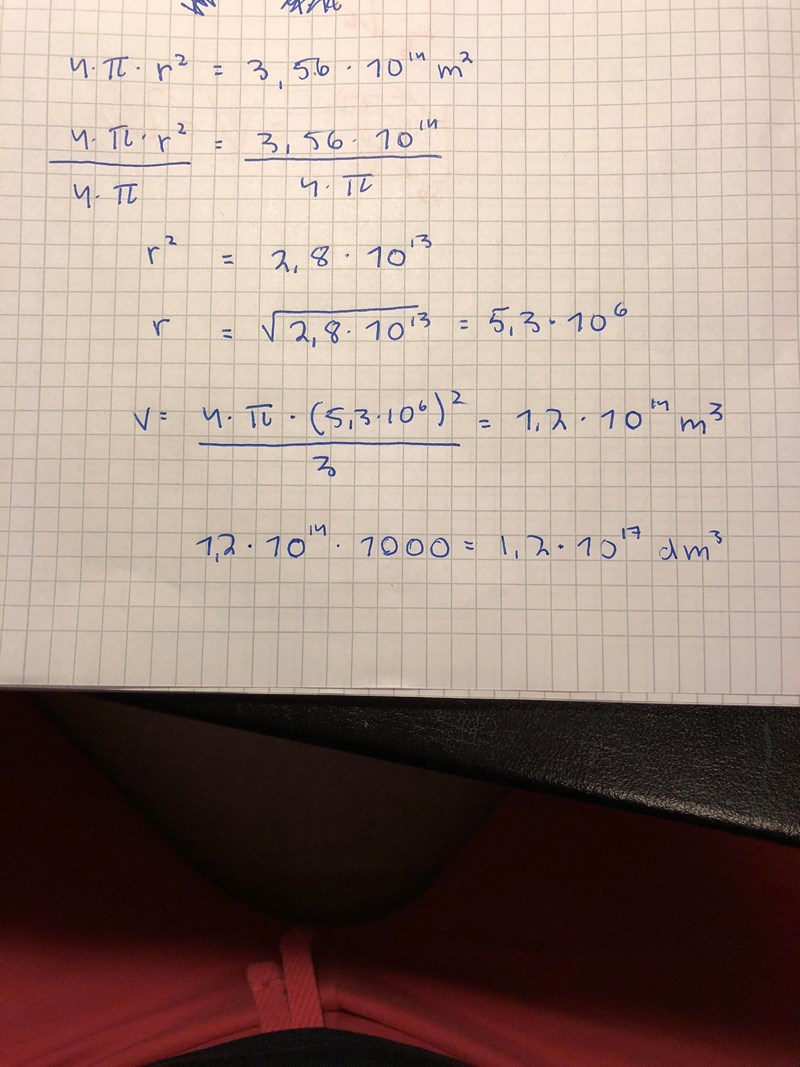 4·π·r² = 3,56·10¹⁴ m²
4·π·r² / 4·π = 3,56·10¹⁴ / 4·π
r² = 2,8·10¹³
r = √2,8·10¹³ = 5,3·10⁶
V= 4·π·(5,3·10⁶)² / 3 = 1,2·10¹⁴ m³
1,2·10¹⁴·1000 = 1,2·10¹⁷ dm³